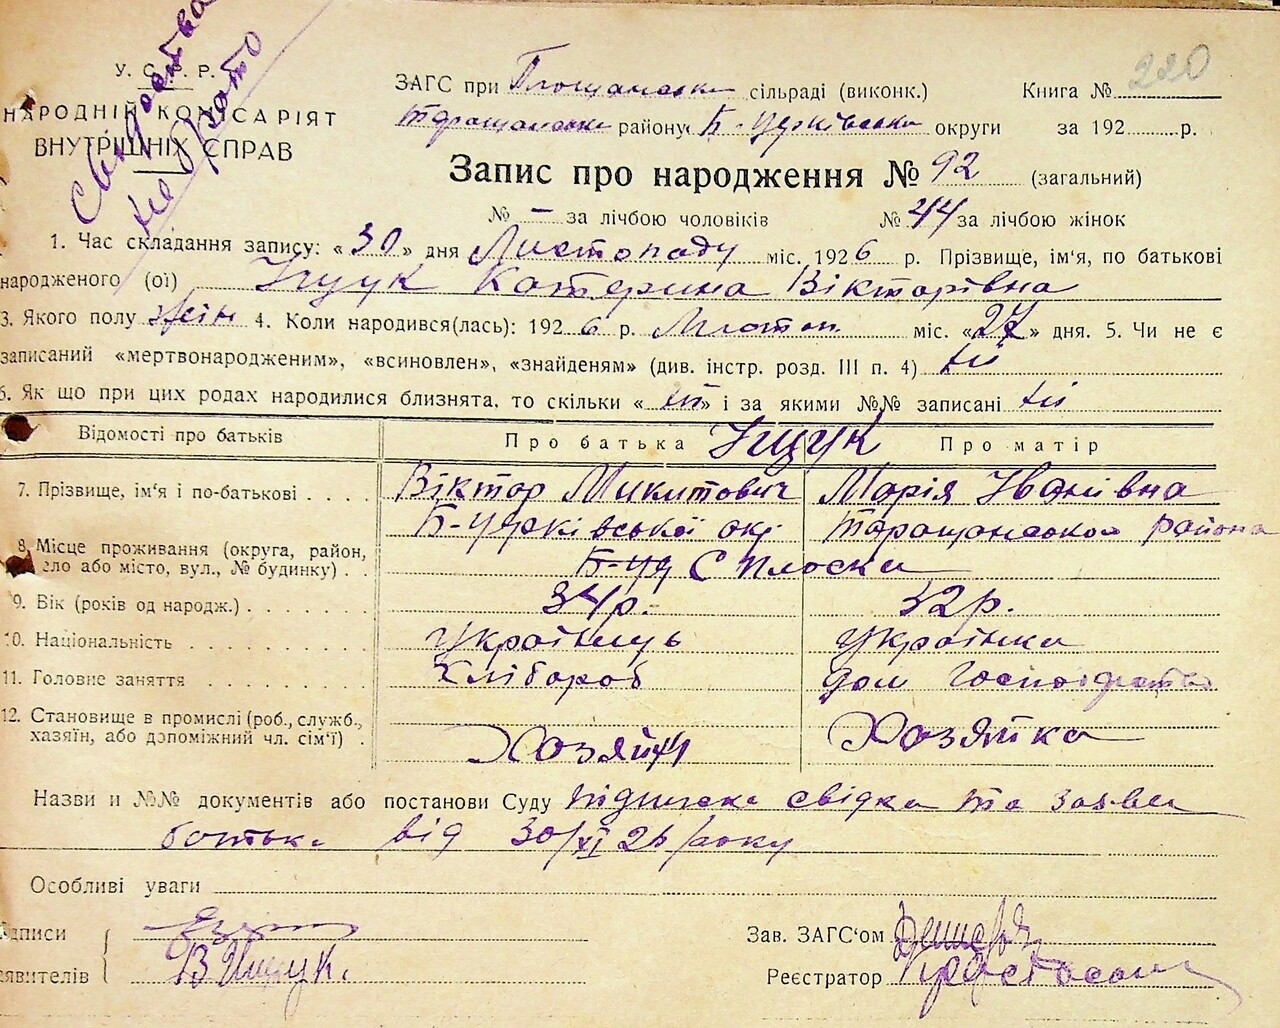 Свідоцтва
не взято
220
У. С. Р. Р.
НАРОДНІЙ КОМІСАРІЯТ
ВНУТРІШНІХ СПРАВ
ЗАГС при Площанськ сільраді (виконк.) Книга №
Таращанськ району Б-Церківськ округи за 192 р.
Запис про народження № 92 (загальний)
№ – за лічбою чоловіків № 44 за лічбою жінок
1. Час складання запису: «30» дня Листопаду міс. 1926 р. Прізвище, ім'я, по батькові
народженого (ої) Іщук Катерина Вікторівна
3. Якого полу жін 4. Коли народився(лась): 1926 р. Листоп міс. «27» дня. 5. Чи не є
записаний «мертвонародженим», «всиновлен», «знайденям» (див. інстр. розд. III п. 4) ні
6. Як що при цих родах народилися близнята, то скільки « ні » і за якими №№ записані ні
Відомості про батьків Про батька Іщук Про матір
7. Прізвище, ім'я і по-батькові Віктор Микитович Марія Іванівна
Б-Церківської окр Таращанської района
8. Місце проживання (округа, район,
село або місто, вул., № будинку) С Плоска
9. Вік (років од народж.) 34р. 32р.
10. Національність Українець Українка
11. Головне заняття Хлібороб дом Господарство
12. Становище в промислі (роб., служб.,
хазяїн, або допоміжний чл. сім'ї) Хозяйн Хозяйка
Назви и №№ документів або постанови Суду підписка свідка та заява
батька від 30/XI 26 року
Особливі уваги
Підписи
заявителів В Іщук.
Зав. ЗАГС'ом
Реєстратор